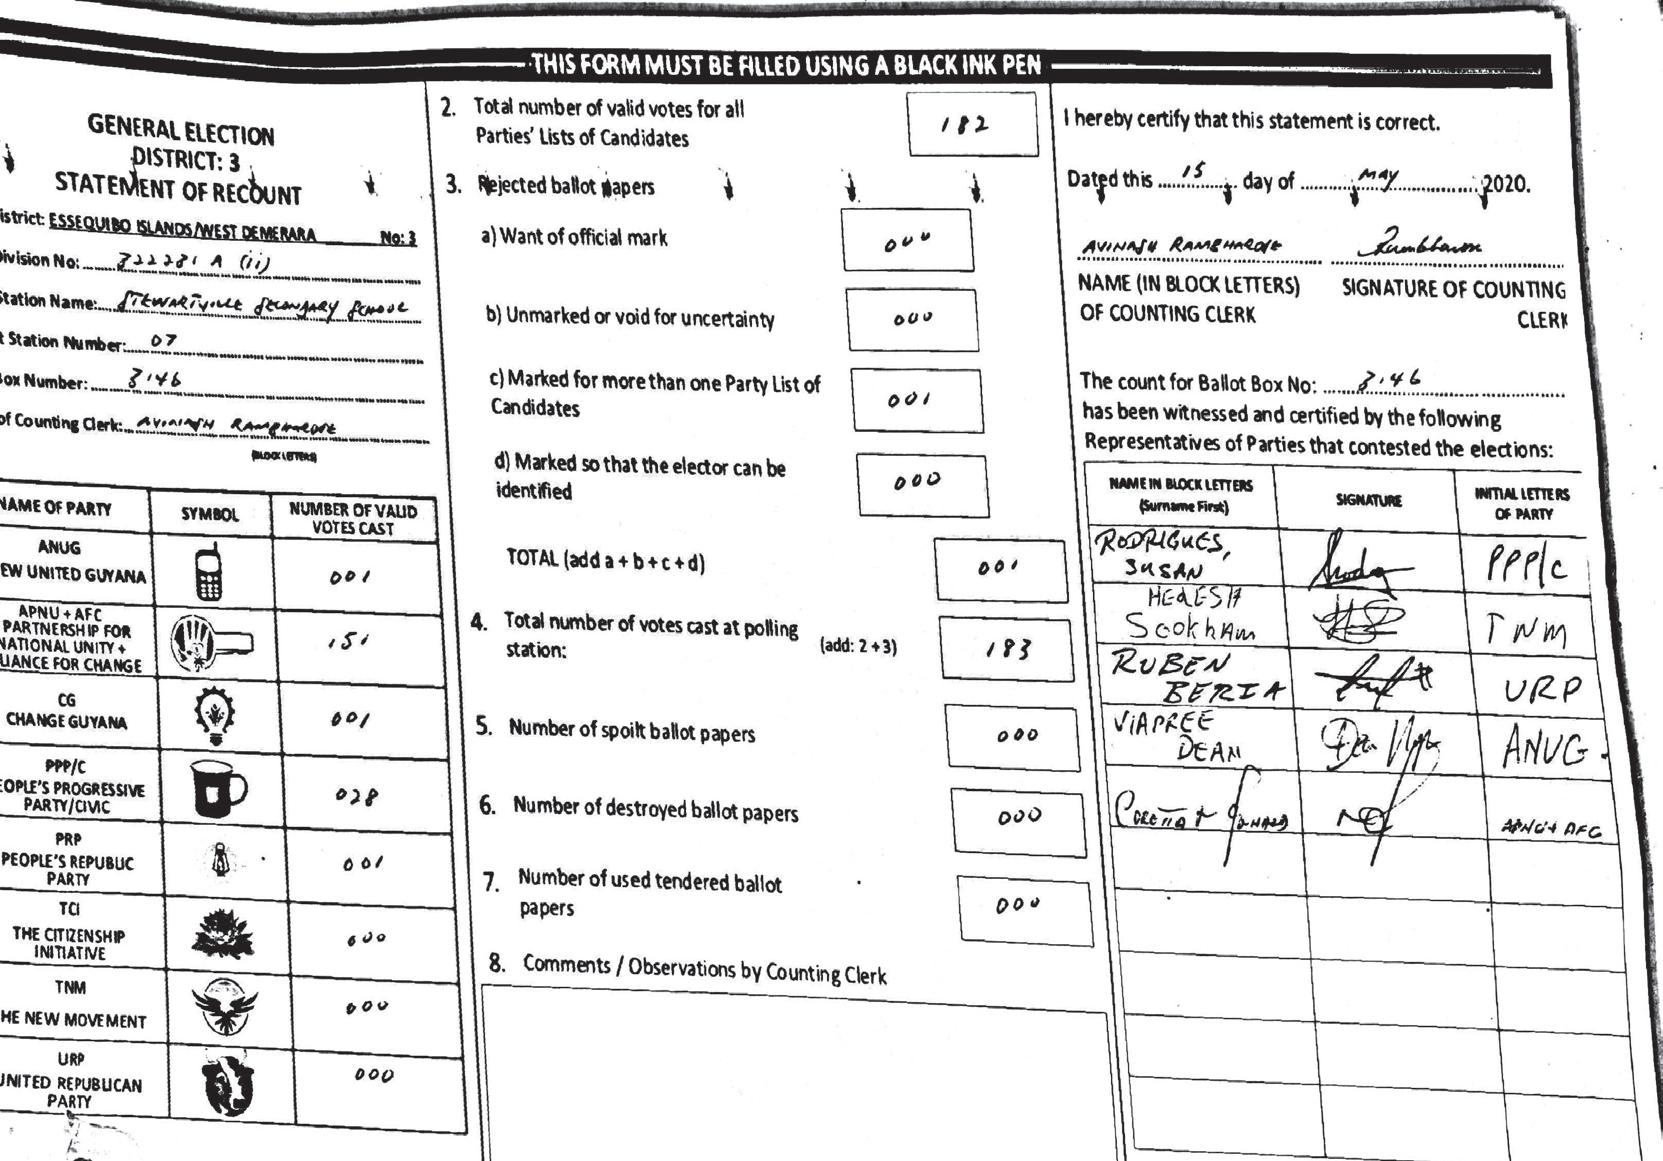 THIS FORM MUST BE FILLED USING A BLACK INK PEN
GENERAL ELECTION
DISTRICT: 3
STATEMENT OF RECOUNT
istrict: ESSEQUIBO ISLANDS/WEST DEMERARA No: 3
ivision No: 322281 A (ii)
Station Name: STEWARTVILLE SECONDARY SCHOOL
t Station Number: 07
Box Number: 3146
of Counting Clerk: AVINASH RAMBHAROSE
(BLOCK LETTERS)
NAME OF PARTY SYMBOL NUMBER OF VALID
VOTES CAST
ANUG
EW UNITED GUYANA 001
APNU + AFC
PARTNERSHIP FOR
NATIONAL UNITY +
LIANCE FOR CHANGE 151
CG
CHANGE GUYANA 001
PPP/C
EOPLE'S PROGRESSIVE
PARTY/CIVIC 028
PRP
PEOPLE'S REPUBLIC
PARTY 001
TCI
THE CITIZENSHIP
INITIATIVE 000
TNM
HE NEW MOVEMENT 000
URP
UNITED REPUBLICAN
PARTY 000
2. Total number of valid votes for all
Parties' Lists of Candidates 182
3. Rejected ballot papers
a) Want of official mark 000
b) Unmarked or void for uncertainty 000
c) Marked for more than one Party List of
Candidates 001
d) Marked so that the elector can be
identified 000
TOTAL (add a + b + c + d) 001
4. Total number of votes cast at polling
station: (add: 2 + 3) 183
5. Number of spoilt ballot papers 000
6. Number of destroyed ballot papers 000
7. Number of used tendered ballot
papers 000
8. Comments / Observations by Counting Clerk
I hereby certify that this statement is correct.
Dated this 15 day of MAY 2020.
AVINASH RAMBHAROSE
NAME (IN BLOCK LETTERS) SIGNATURE OF COUNTING
OF COUNTING CLERK CLERK
The count for Ballot Box No: 3146
has been witnessed and certified by the following
Representatives of Parties that contested the elections:
NAME IN BLOCK LETTERS
(Surname First) SIGNATURE INITIAL LETTERS
OF PARTY
RODRIGUES,
SUSAN PPP/C
Sookham TNM
RUBEN
BERIA URP
VIAPREE
DEAN ANUG
APNU+AFC